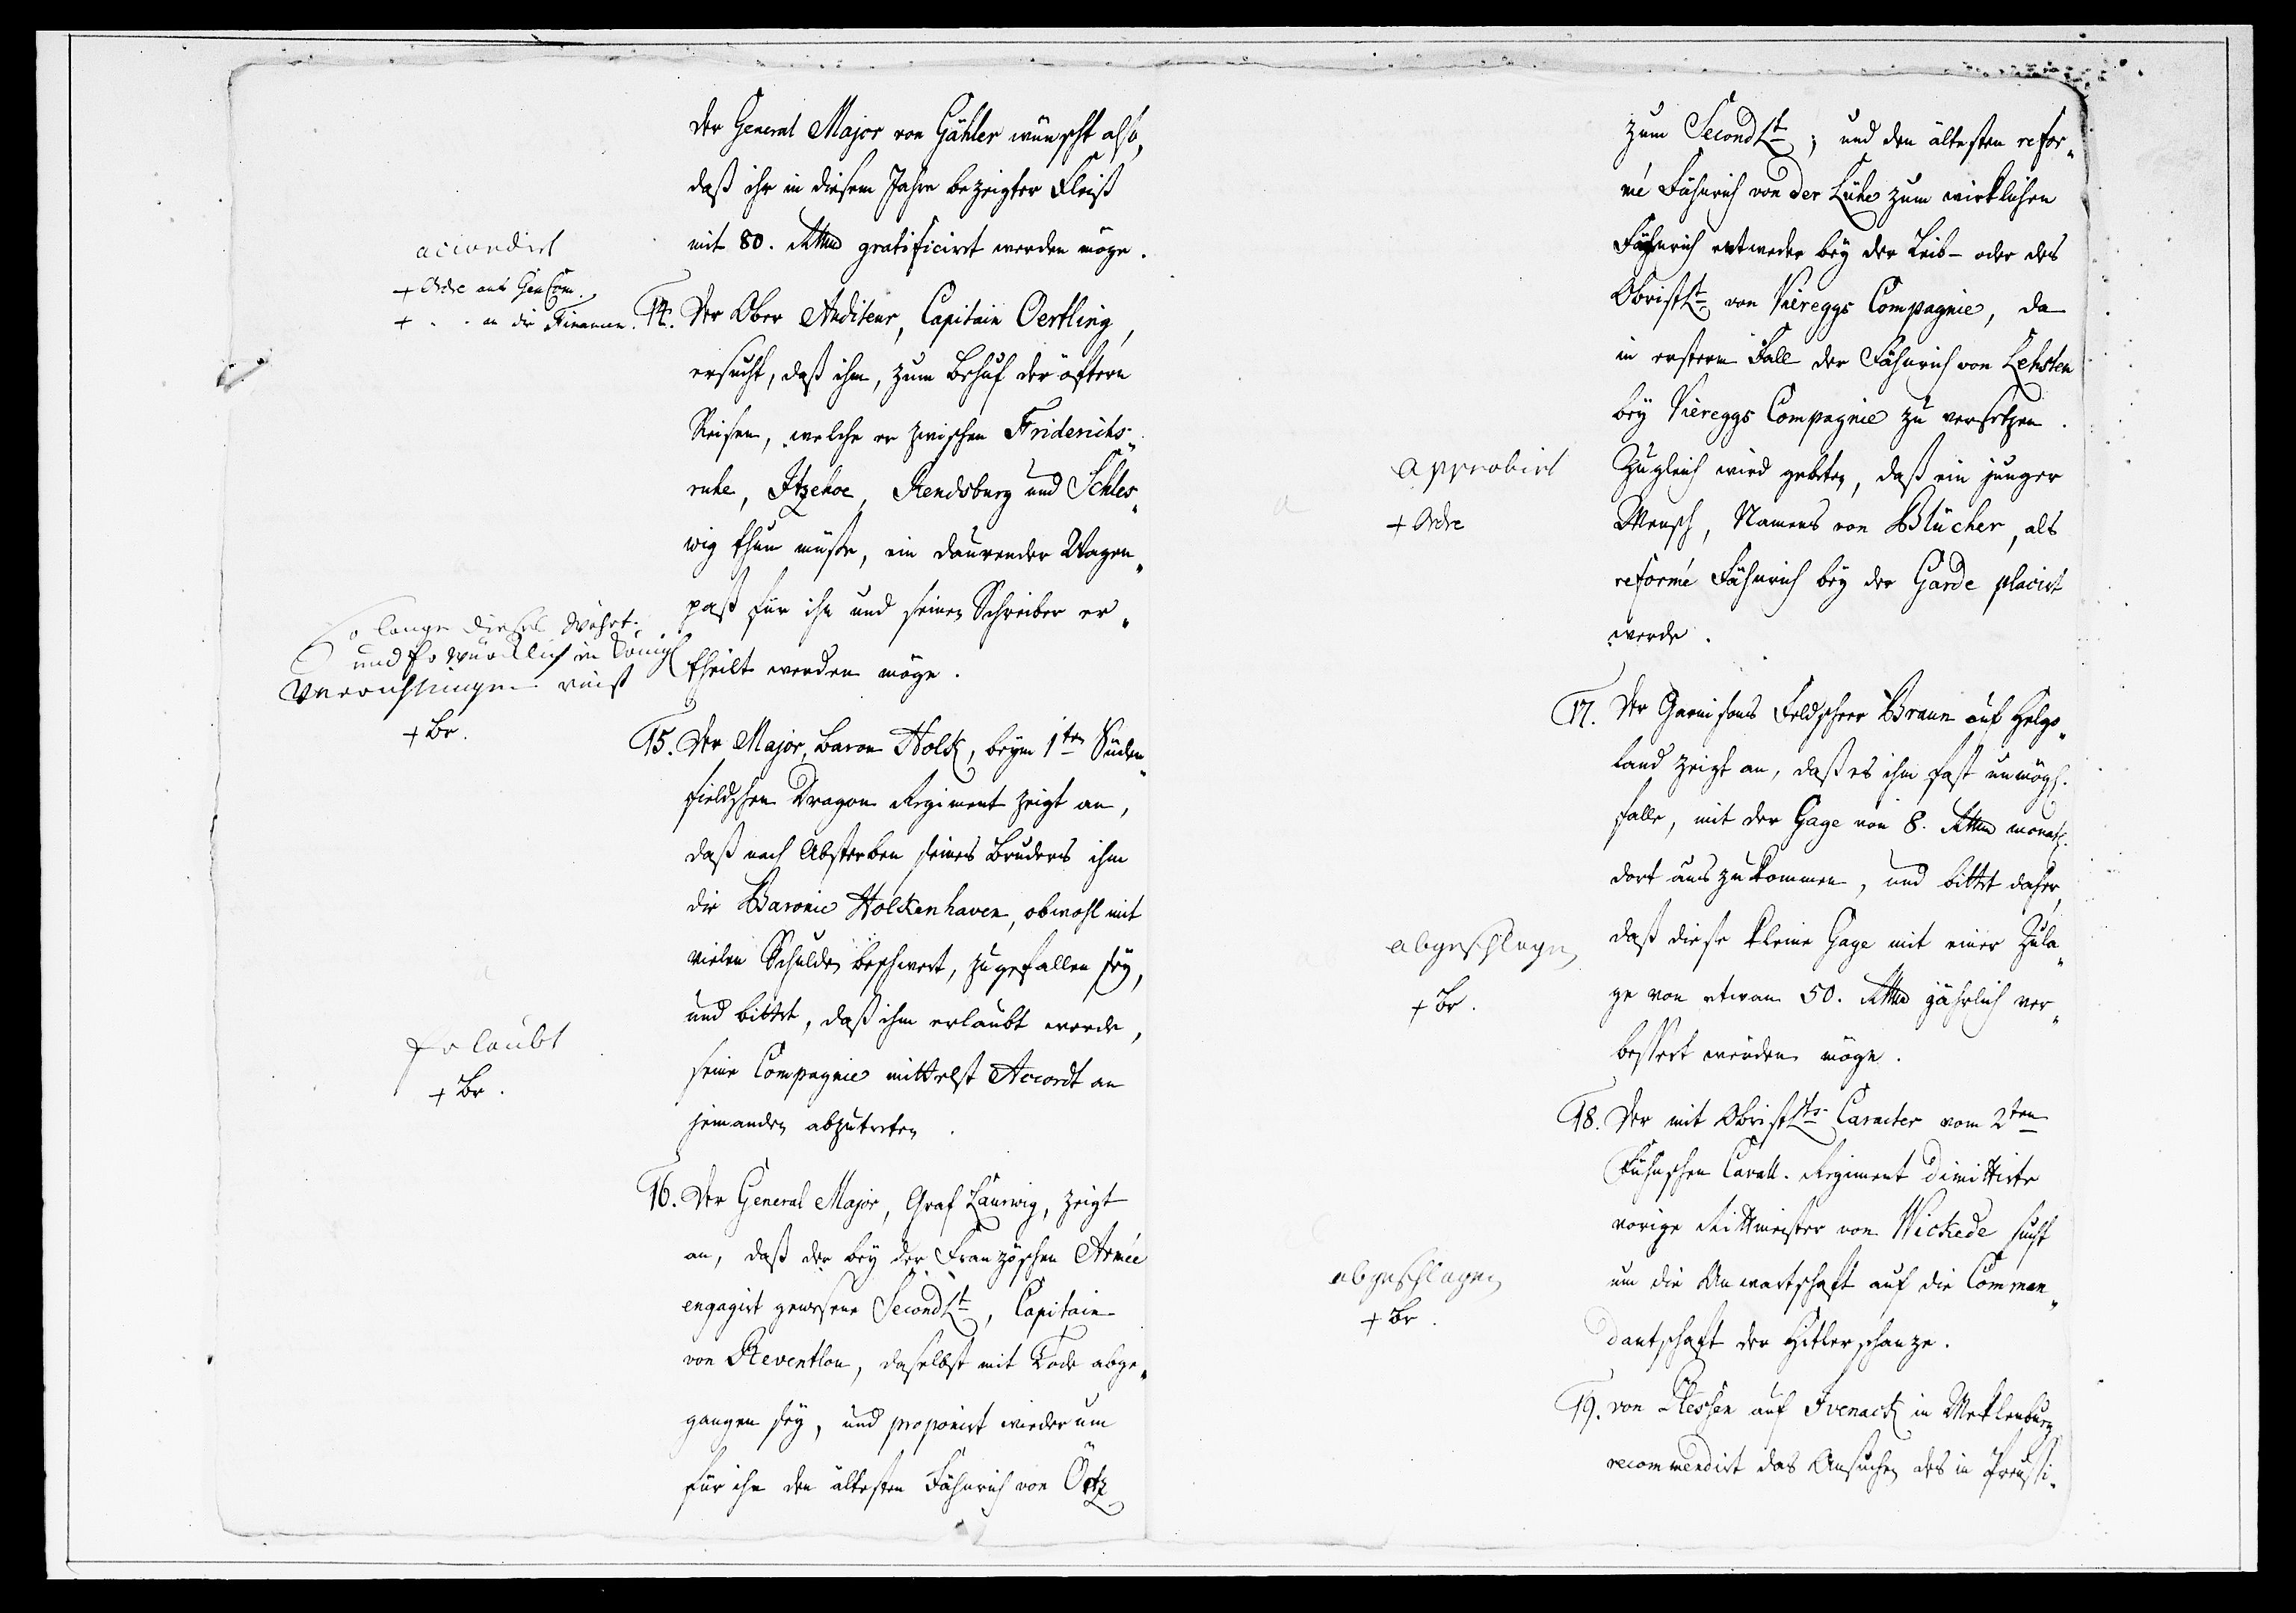 der General Major von Gähler wünscht also,
daß ihr in diesem Jahre bezeigter Fleiß
mit 80. Rthlr gratificirt werden möge.
accordirt
+ Ordre ans Gen Com.
+ . . an die Financen.
14. Der Ober Auditeur, Capitain Oertling,
ersucht, daß ihm, zum Behuf der öftern
Reisen, welche er zwischen Friderichs-
ruhe, Itzehoe, Rendsburg und Schles-
wig thun müßte, ein daurender Wagen-
paß für ihn und seinen Schreiber er-
theilt werden möge.
So lange dieses währt.
und Er würcklich in Königl
Verrichtungen reist
+ Br.
15. Der Major, Baron Holck, beym 1ten Süden-
fieldschen Dragon. Regiment zeigt an,
daß nach Absterben seines Bruders ihm
die Baronie Holckenhaven, obwohl mit
vielen Schulden beschwert, zugefallen sey,
und bittet, daß ihm erlaubt werde,
seine Compagnie mittelst Accordt an
jemanden abzutreten.
Erlaubt
+ Br.
16. Der General Major, Graf Laurwig, zeigt
an, daß der bey der Französchen Armée
engagirt gewesene SecondLt, Capitain
von Reventlou, daselbst mit Tode abge-
gangen sey, und proponirt wiederum
für ihn den ältesten Fähnrich von Örtz
zum SecondLt; und den ältesten refor-
mé Fähnrich von der Lühe zum wirklichen
Fähnrich entweder bey der Leib- oder des
ObristLt von Viereggs Compagnie, da
in erstern Fall der Fähnrich von Lehsten
bey Viereggs Compagnie zu versetzen.
Zugleich wird gebeten, daß ein junger
Mensch, Namens von Blücher, als
reformé Fähnrich bey der Garde placirt
werde.
approbirt
+ Ordre
17. Der Garnisons Feldscheer Braun auf Helgo-
land zeigt an, daß es ihm fast unmögl.
falle, mit der Gage von 8. Rthlr monatl.
dort auszukommen, und bittet daher,
daß diese kleine Gage mit einer Zula-
ge von etwan 50. Rthlr jährlich ver-
bessert werden möge.
abgeschlagen
+ Br.
18. Der mit ObristLts Caracter vom 2ten
Fühnschen Cavall. Regiment dimittirte
vorige Rittmeister von Wickede sucht
um die Anwartschaft auf die Comman-
dantschaft der Hitlerschanze.
abgeschlagen
+ Br.
19. von Plessen auf Ivenack in Mecklenburg
recommendirt das Ansuchen des in Preussi-